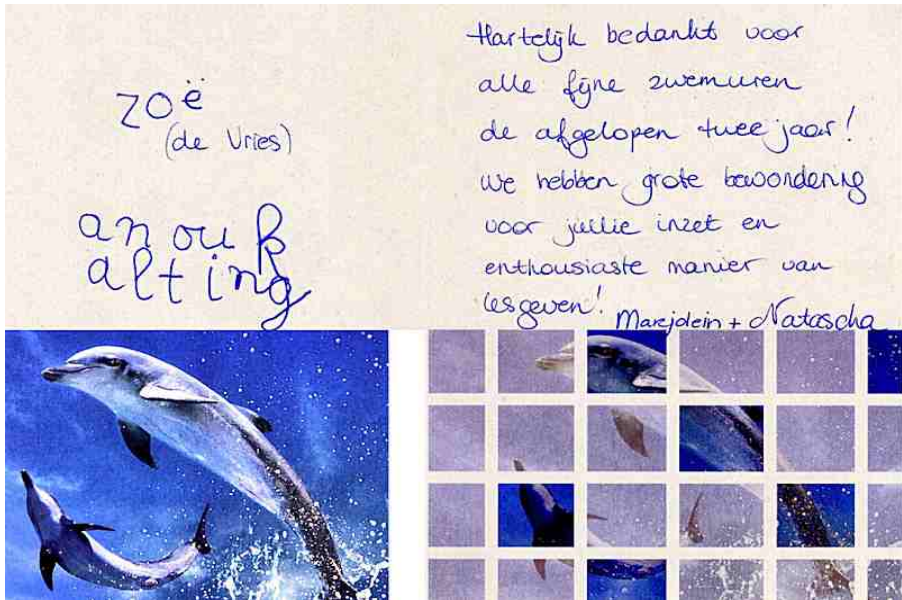 zoë
(de Vries)
anouk
alting
Hartelijk bedankt voor
alle fijne zwemuren
de afgelopen twee jaar!
We hebben grote bewondering
voor jullie inzet en
enthousiaste manier van
lesgeven!
Marejdein + Natascha